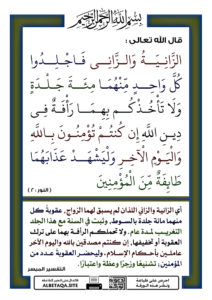 بسم الله الرحمن الرحيم
قال الله تعالى :
الزَّانِيَةُ وَالزَّانِي فَاجْلِدُوا
كُلَّ وَاحِدٍ مِّنْهُمَا مِئَةَ جَلْدَةٍ
وَلَا تَأْخُذْكُم بِهِمَا رَأْفَةٌ فِي
دِينِ اللَّهِ إِن كُنتُمْ تُؤْمِنُونَ بِاللَّهِ
وَالْيَوْمِ الْآخِرِ وَلْيَشْهَدْ عَذَابَهُمَا
طَائِفَةٌ مِّنَ الْمُؤْمِنِينَ
( النور : ٢ )
أي الزانية والزاني اللذان لم يسبق لهما الزواج، عقوبةُ كل
منهما مائة جلدة بالسوط، وثبت في السنة مع هذا الجلد
التغريب لمدة عام. ولا تحملكم الرأفة بهما على ترك
العقوبة أو تخفيفها، إن كنتم مصدقين بالله واليوم الآخر
عاملين بأحكام الإسلام، وليحضر العقوبة عدد من
المؤمنين؛ تشنيعًا وزجرًا وعظة واعتبارًا.
التفسير الميسر
ALBETAQA.SITE